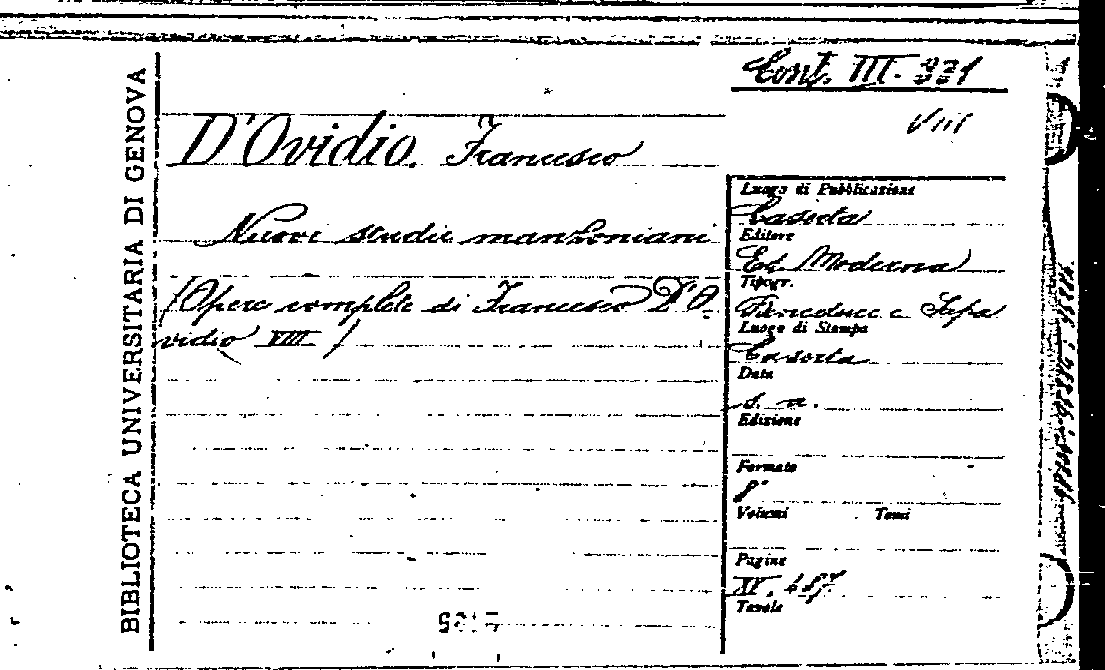 BIBLIOTECA UNIVERSITARIA DI GENOVA
Cont. III. 331
VIII
D'Ovidio Francesco
Nuovi studii manzoniani
(Opere complete di Francesco D'O-
vidio VIII)
Luogo di Pubblicazione
Caserta
Editore
Ed. Moderna
Tipogr.
Luogo di Stampa
Caserta
Data
s. a.
Edizione
Formato
8°
Volumi Tomi
Pagine
XI. 487.
Tavole